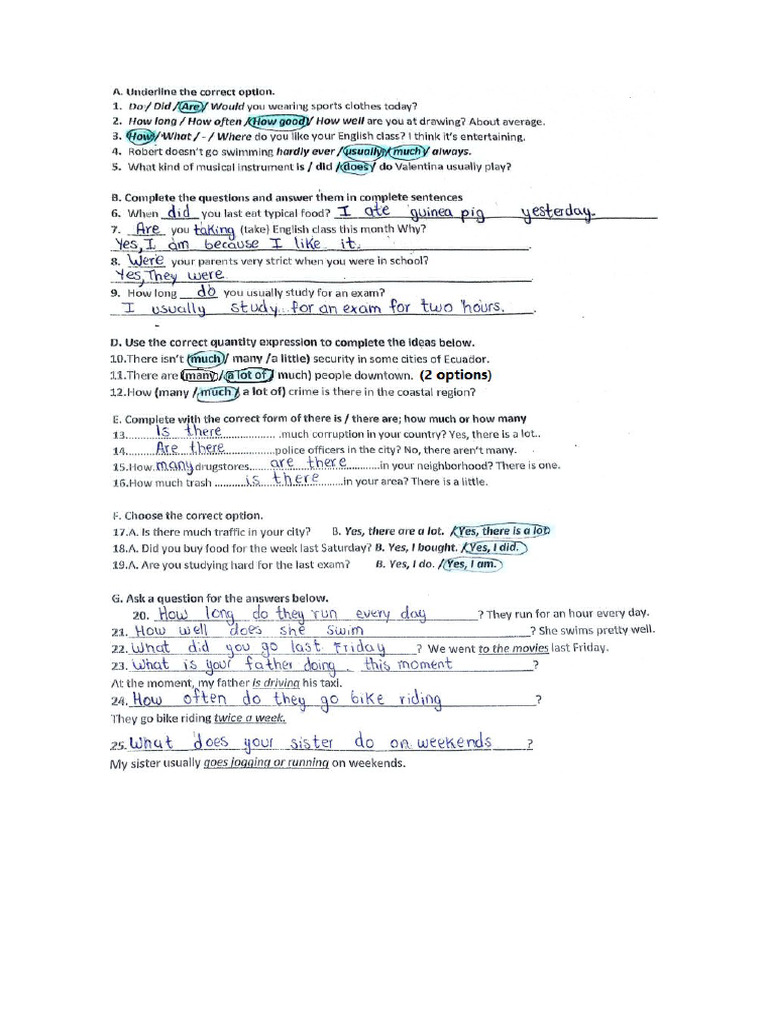 A. Underline the correct option.
1. Do / Did / Are / Would you wearing sports clothes today?
2. How long / How often / How good / How well are you at drawing? About average.
3. How / What / - / Where do you like your English class? I think it's entertaining.
4. Robert doesn't go swimming hardly ever / usually / much / always.
5. What kind of musical instrument is / did / does / do Valentina usually play?
B. Complete the questions and answer them in complete sentences
6. When did you last eat typical food? I ate guinea pig yesterday.
7. Are you taking (take) English class this month Why?
Yes, I am because I like it.
8. Were your parents very strict when you were in school?
Yes, They were
9. How long do you usually study for an exam?
I usually study for an exam for two hours.
D. Use the correct quantity expression to complete the ideas below.
10.There isn't (much / many /a little) security in some cities of Ecuador.
11.There are (many / a lot of / much) people downtown. (2 options)
12.How (many / much / a lot of) crime is there in the coastal region?
E. Complete with the correct form of there is / there are; how much or how many
13. Is there .much corruption in your country? Yes, there is a lot..
14. Are there police officers in the city? No, there aren't many.
15.How many drugstores are there in your neighborhood? There is one.
16.How much trash is there in your area? There is a little.
F. Choose the correct option.
17.A. Is there much traffic in your city? B. Yes, there are a lot. /Yes, there is a lot.
18.A. Did you buy food for the week last Saturday? B. Yes, I bought. /Yes, I did.
19.A. Are you studying hard for the last exam? B. Yes, I do. /Yes, I am.
G. Ask a question for the answers below.
20. How long do they run every day ? They run for an hour every day.
21. How well does she swim ? She swims pretty well.
22. What did you go last Friday ? We went to the movies last Friday.
23. What is your father doing this moment ?
At the moment, my father is driving his taxi.
24. How often do they go bike riding ?
They go bike riding twice a week.
25. What does your sister do on weekends ?
My sister usually goes jogging or running on weekends.